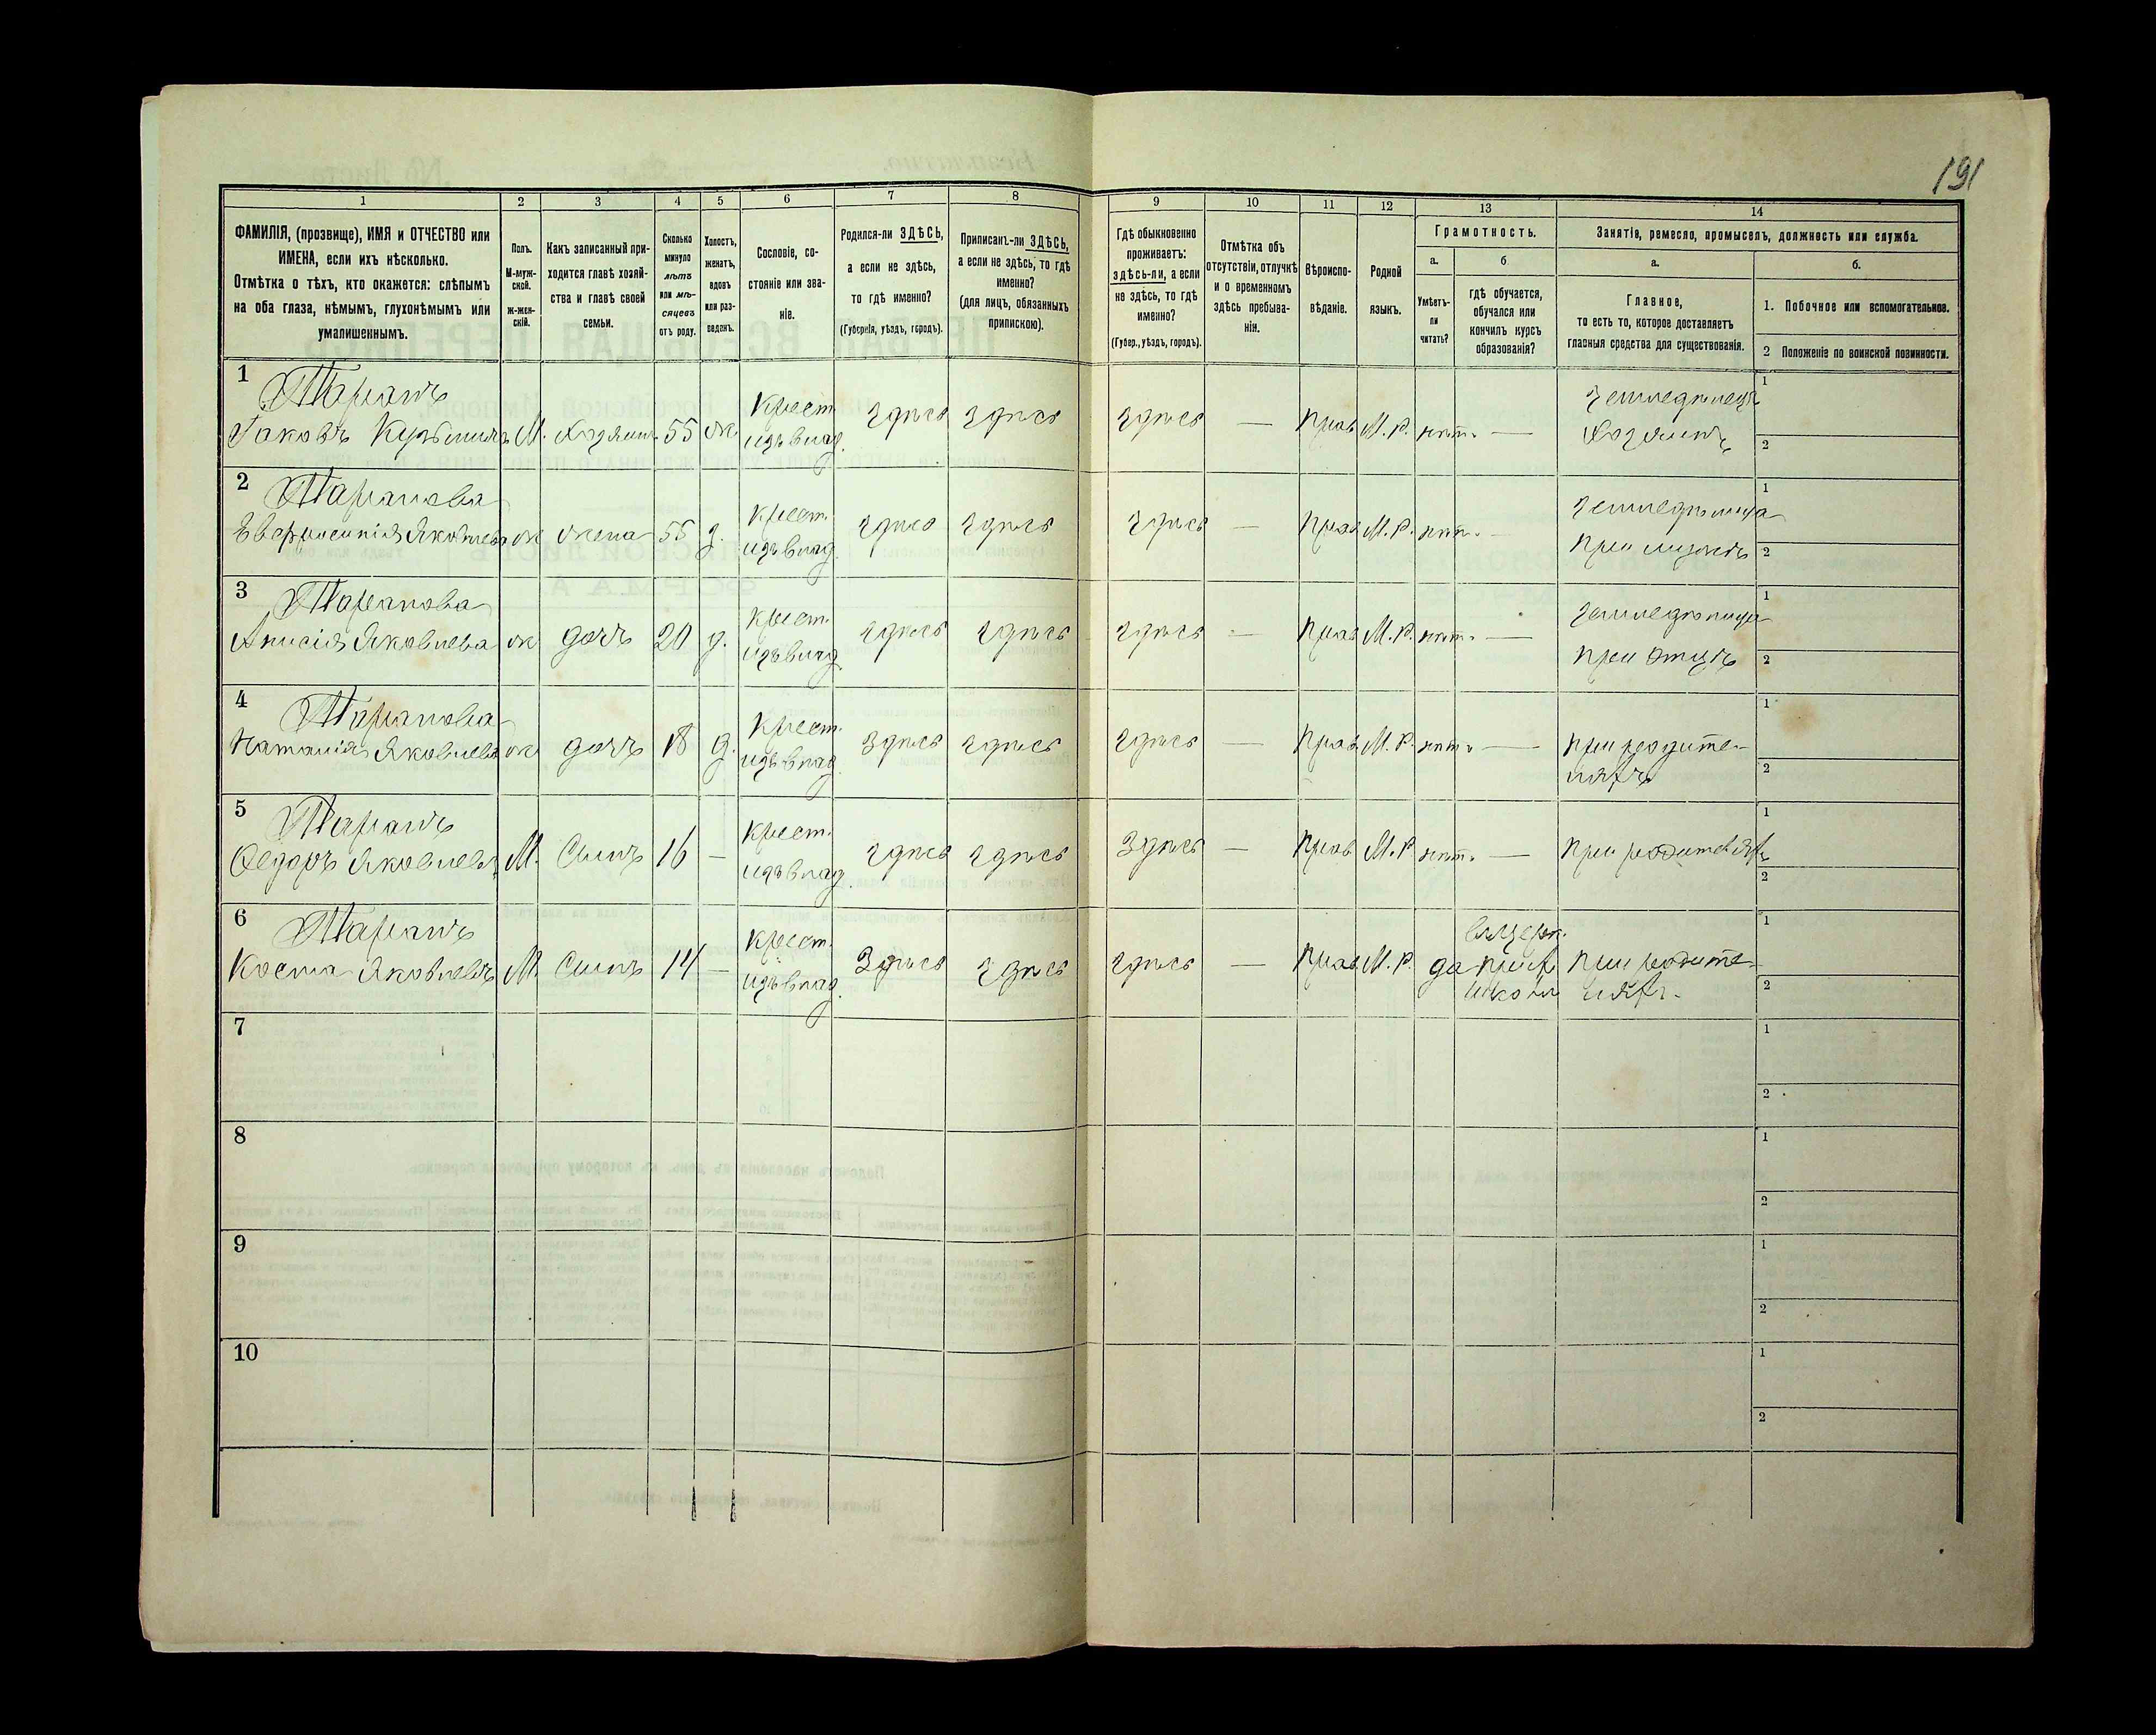 191
1 2 3 4 5 6 7 8 9 10 11 12 13 14
ФАМИЛІЯ, (прозвище), ИМЯ и ОТЧЕСТВО или
ИМЕНА, если ихъ нѣсколько.
Отмѣтка о тѣхъ, кто окажется: слѣпымъ
на оба глаза, нѣмымъ, глухонѣмымъ или
умалишеннымъ.
Полъ.
М-муж-
ской.
ж-жен-
скій.
Какъ записанный при-
ходится главѣ хозяй-
ства и главѣ своей
семьи.
Сколько
минуло
лѣтъ
или мѣ-
сяцевъ
отъ роду.
Холостъ,
женатъ,
вдовъ
или раз-
веденъ.
Сословіе, со-
стояніе или зва-
ніе.
Родился-ли ЗДѢСЬ,
а если не здѣсь,
то гдѣ именно?
(Губернія, уѣздъ, городъ).
Приписанъ-ли ЗДѢСЬ,
а если не здѣсь, то гдѣ
именно?
(для лицъ, обязанныхъ
припискою).
Гдѣ обыкновенно
проживаетъ:
здѣсь-ли, а если
не здѣсь, то гдѣ
именно?
(Губер., уѣздъ, городъ).
Отмѣтка объ
отсутствіи, отлучкѣ
и о временномъ
здѣсь пребыва-
ніи.
Вѣроиспо-
вѣданіе.
Родной
языкъ.
Грамотность.
а.
Умѣетъ-
ли
читать?
б
гдѣ обучается,
обучался или
кончилъ курсъ
образованія?
Занятія, ремесло, промыселъ, должность или служба.
а.
Главное,
то есть то, которое доставляетъ
главныя средства для существованія.
б.
1. Побочное или вспомогательное.
2 Положеніе по воинской повинности.
1 Таранъ Крест. Земледѣлецъ 1
Іаковъ Кузьминъ М. Хозяинъ 55 ж. изъ влад. здѣсь здѣсь здѣсь — Прав. М. Р. нѣт. — хозяинъ 2
2 Таранова крест. Земледѣлица 1
Евфросинія Яковлева ж жена 55 з. изъ влад. здѣсь здѣсь здѣсь — Прав М. Р. нѣт. — при мужѣ 2
3 Таранова крест. Земледѣлица 1
Анисія Яковлева ж дочь 20 д. изъ влад. здѣсь здѣсь здѣсь — Прав М. Р. нѣт. — при отцѣ 2
4 Таранова Крест. 1
Наталія Яковлева ж дочь 18 д. изъ влад. здѣсь здѣсь здѣсь — Прав М. Р. нѣт. — при родите-
ляхъ 2
5 Таранъ крест. 1
Ѳедоръ Яковлевъ М. Сынъ 16 — изъ влад. здѣсь здѣсь здѣсь — Прав М. Р. нѣт. — при родителяхъ 2
6 Таранъ крест. въ церк. 1
Косма Яковлевъ М. Сынъ 14 — изъ влад. здѣсь здѣсь здѣсь — Прав. М. Р. да прих при родите-
школ ляхъ. 2
7 1
2
8 1
2
9 1
2
10 1
2